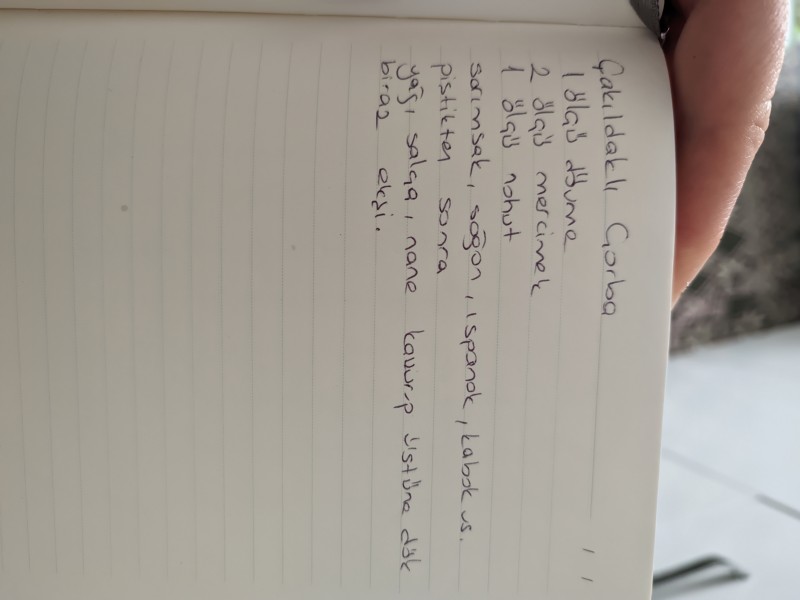 Çakıldaklı Çorba
1 ölçü dövme
2 ölçü mercimek
1 ölçü nohut
sarımsak, soğan, ıspanak, kabak vs.
pistikten sonra
yağ, salça, nane kavurup üstüne dök
biraz ekşi.